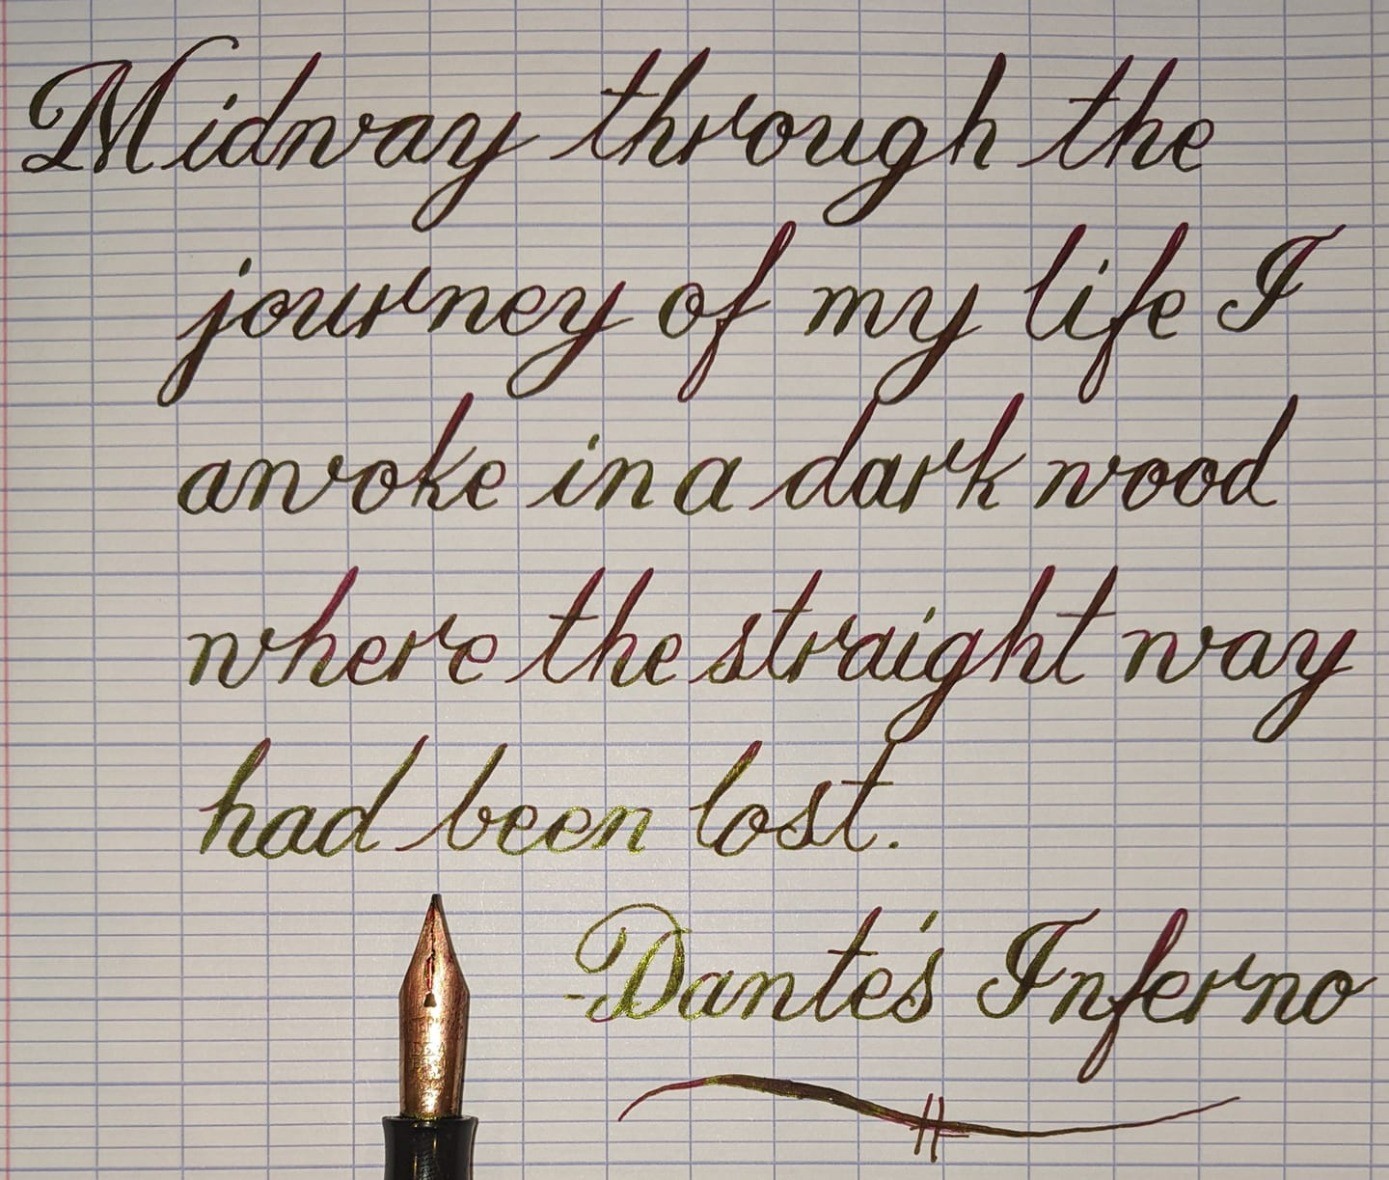 Midway through the
journey of my life I
awoke in a dark wood
where the straight way
had been lost.
-Dante's Inferno